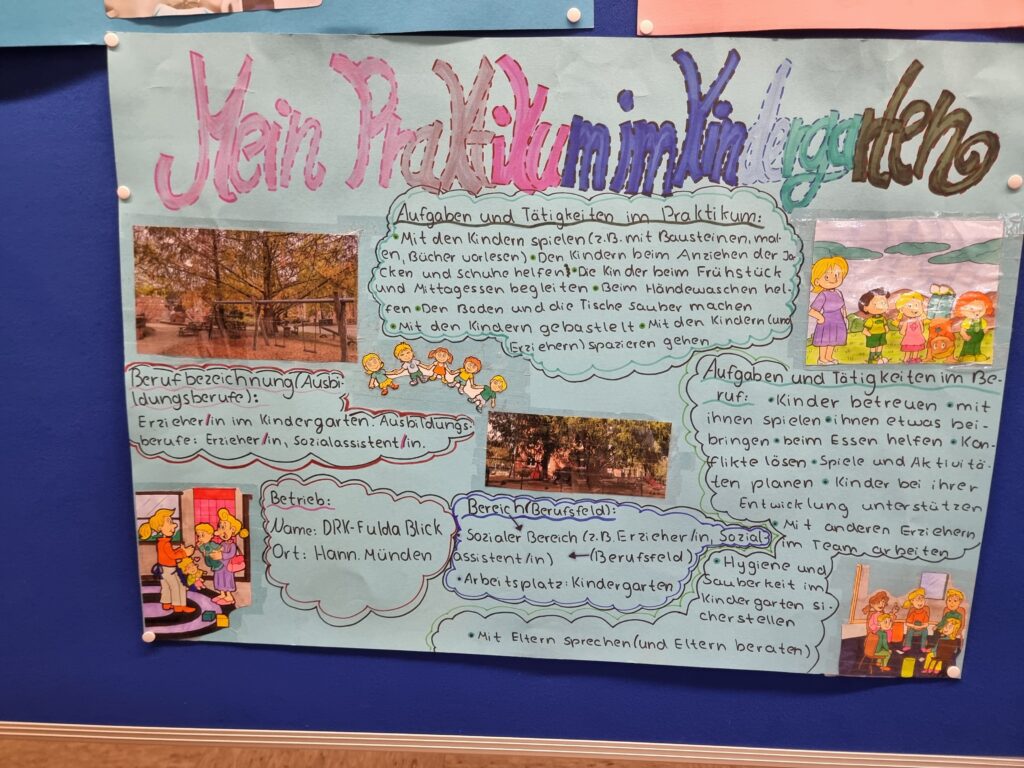 Mein Praktikum im Kindergarten
Aufgaben und Tätigkeiten im Praktikum:
• Mit den Kindern spielen (z.B. mit Bausteinen, mal-
en, Bücher vorlesen) • Den Kindern beim Anziehen der Ja-
cken und schuhe helfen • Die Kinder beim Frühstück
und Mittagessen begleiten • Beim Händewaschen hel-
fen • Den Boden und die Tische sauber machen
• Mit den Kindern gebastlelt • Mit den Kindern (und
Erziehern) spazieren gehen
Beruf bezeichnung (Ausbi-
ldungsberufe):
Erzieher/in im Kindergarten. Ausbildungs-
berufe: Erzieher/in, Sozialassistent/in.
Betrieb:
Name: DRK-Fulda Blick
Ort: Hann. Münden
Bereich (Berufsfeld):
Sozialer Bereich (z.B. Erzieher/in, Sozial-
assistent/in) ← (Berufsfeld)
• Arbeitsplatz: Kindergarten
Aufgaben und Tätigkeiten im Be-
ruf: • Kinder betreuen • mit
ihnen spielen • ihnen etwas bei-
bringen • beim Essen helfen • Kon-
flikte lösen • Spiele und Aktivitä-
ten planen • Kinder bei ihrer
Entwicklung unterstützen
• Mit anderen Erziehern
im Team arbeiten
• Hygiene und
Sauberkeit im
Kindergarten si-
cherstellen
• Mit Eltern sprechen (und Eltern beraten)